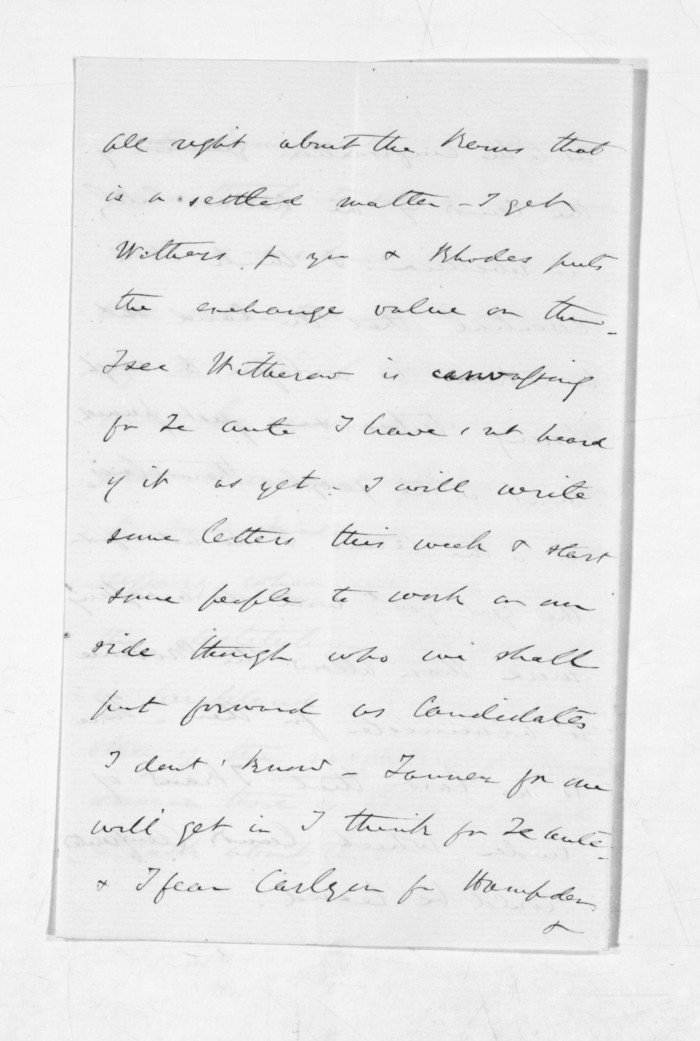 all right about the Rerus that
is a settled matter - I get
Withers f you & Rhodes puts
the exchange value on them -
I see Witherow is canvassing
for Te aute I have not heard
of it as yet - I will write
some letters this week & start
some people to work on our
side though who we shall
put forward as Candidates
I dont know - Tanner for one
will get in I think for Te aute -
& I fear Carlyon for Hampden
&